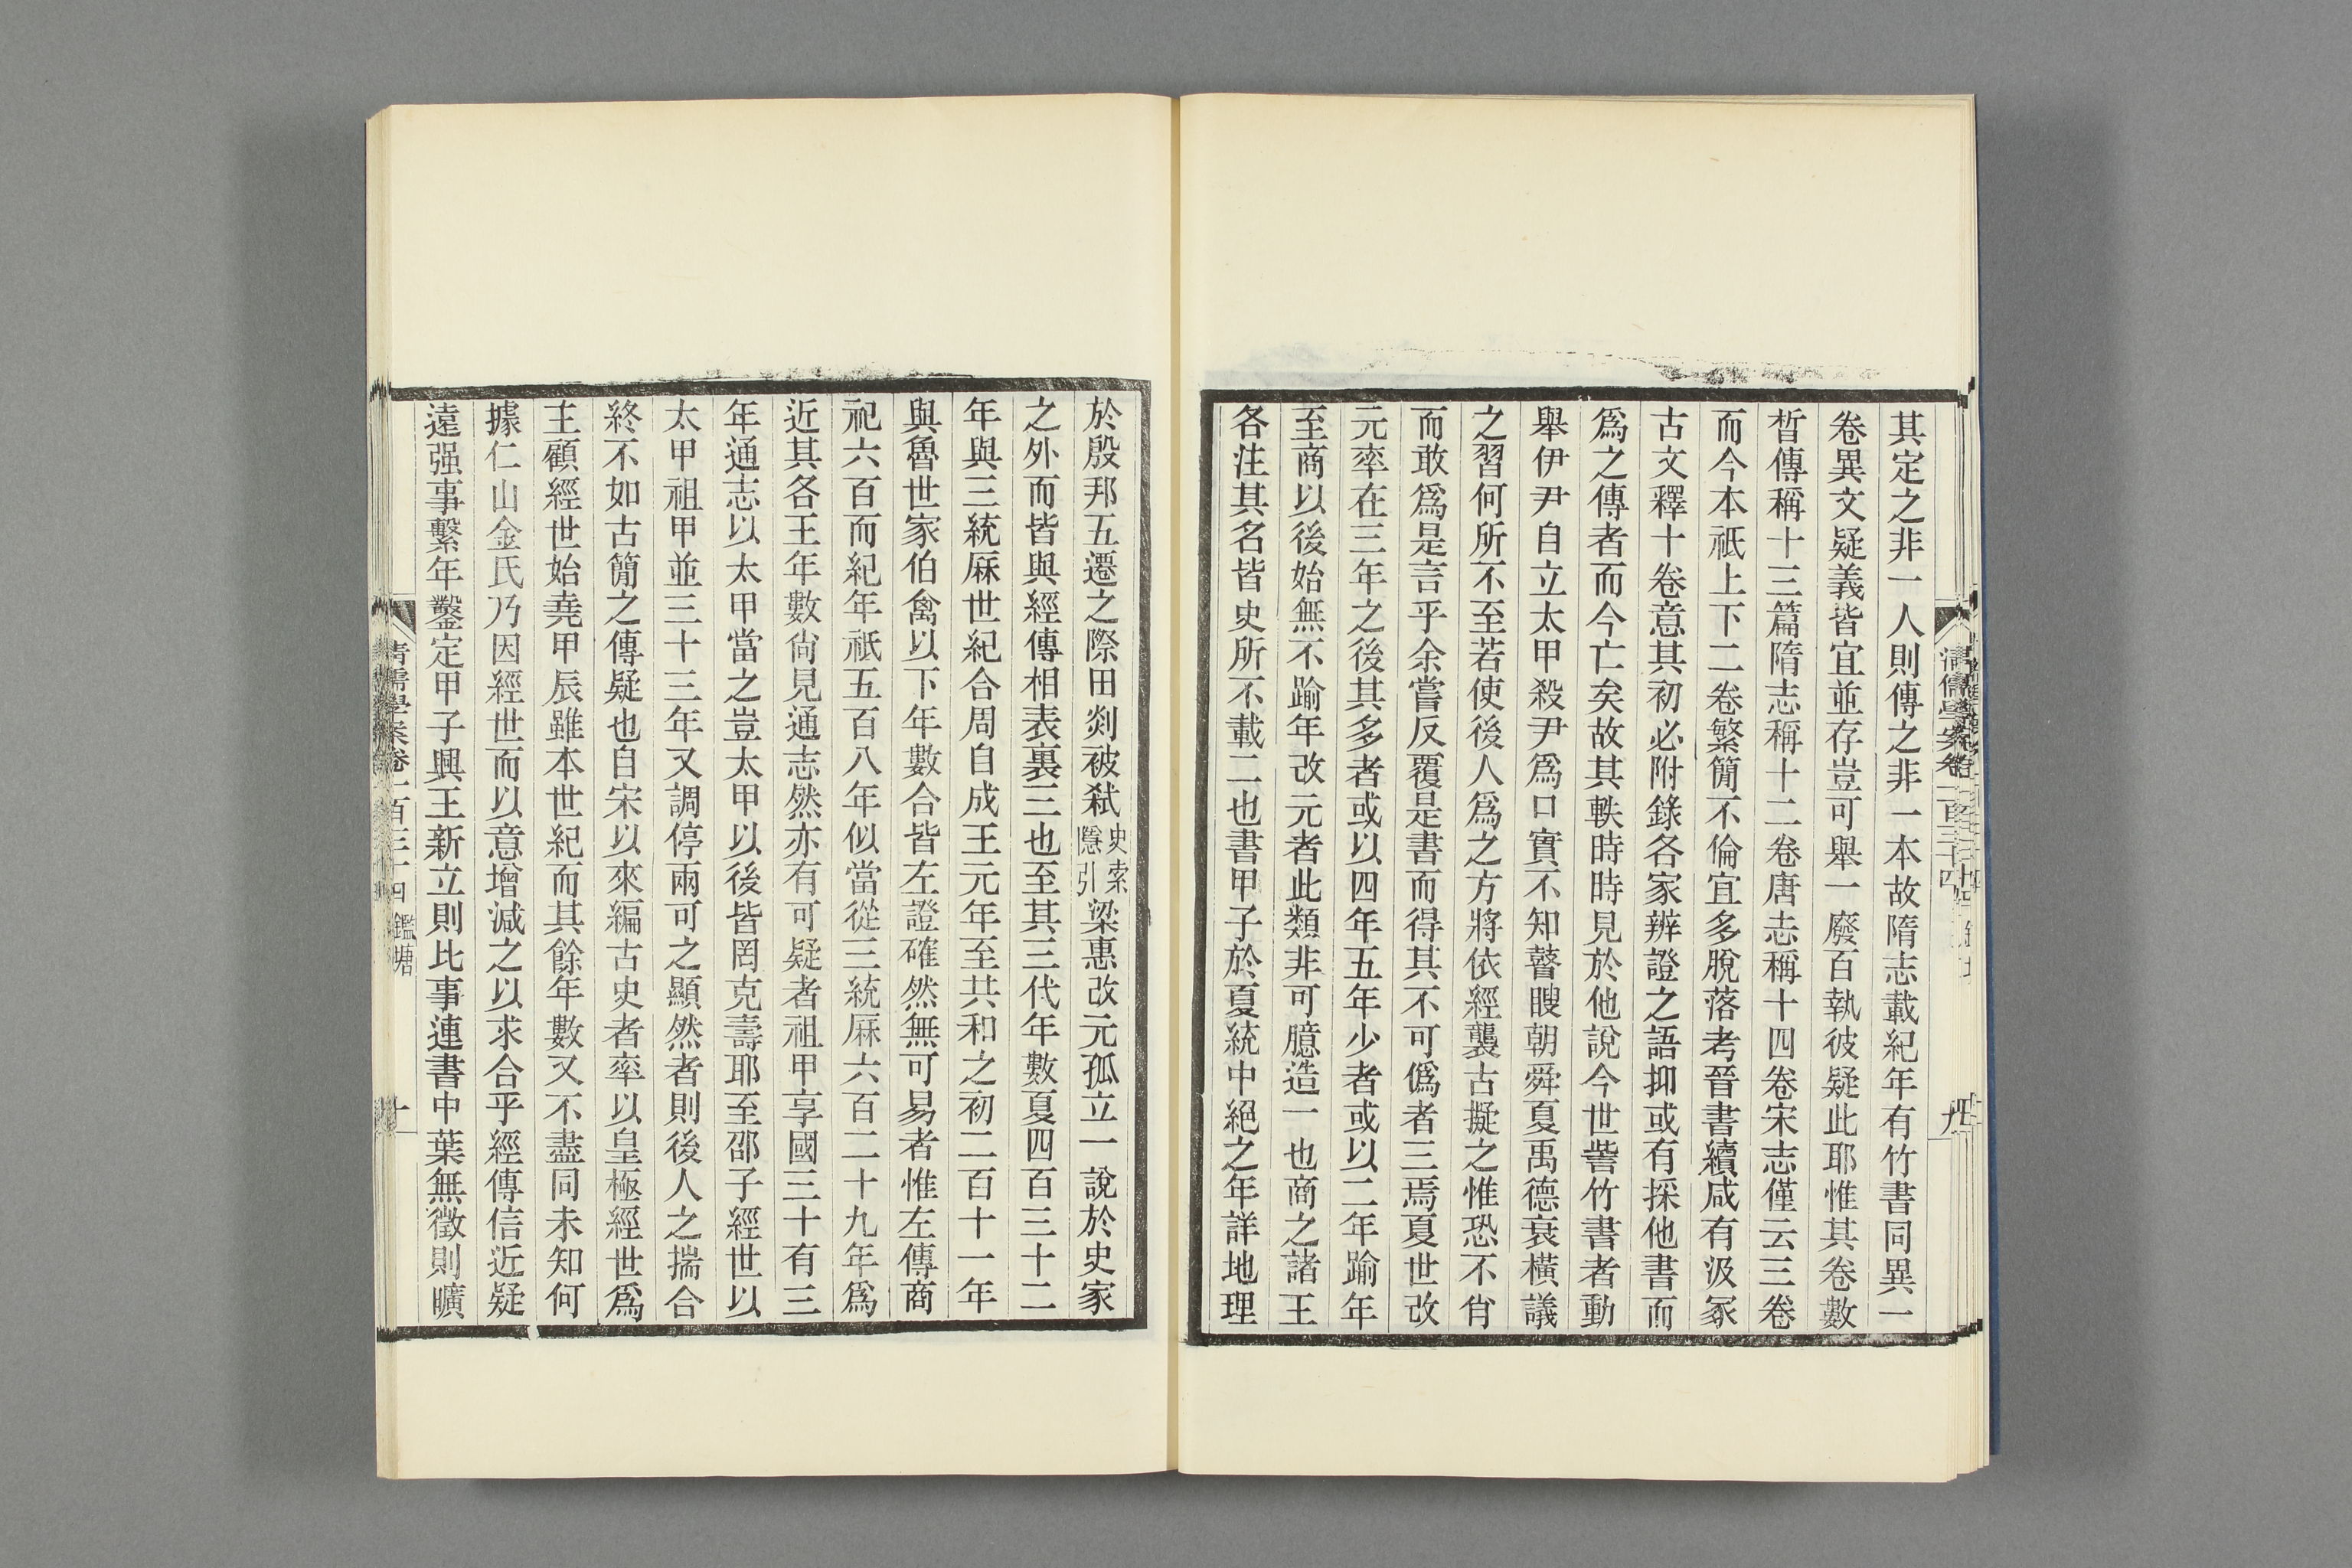 其定之非一人則傳之非一本故隋志載紀年有竹書同異一
卷異文疑義皆宜並存豈可舉一廢百執彼疑此耶惟其卷數
晳傳稱十三篇隋志稱十二卷唐志稱十四卷宋志僅云三卷
而今本祇上下二卷繁簡不倫宜多脫落考晉書續咸有汲冢
古文釋十卷意其初必附錄各家辨證之語抑或有採他書而
爲之傳者而今亡矣故其軼時時見於他說今世訾竹書者動
舉伊尹自立太甲殺尹爲口實不知瞽瞍朝舜夏禹德衰橫議
之習何所不至若使後人爲之方將依經襲古擬之惟恐不肖
而敢爲是言乎余嘗反覆是書而得其不可僞者三焉夏世改
元率在三年之後其多者或以四年五年少者或以二年踰年
至商以後始無不踰年改元者此類非可臆造一也商之諸王
各注其名皆史所不載二也書甲子於夏統中絕之年詳地理
於殷邦五遷之際田剡被弒史索隱引梁惠改元孤立一說於史家
之外而皆與經傳相表裏三也至其三代年數夏四百三十二
年與三統厤世紀合周自成王元年至共和之初二百十一年
與魯世家伯禽以下年數合皆左證確然無可易者惟左傳商
祀六百而紀年祇五百八年似當從三統厤六百二十九年爲
近其各王年數尙見通志然亦有可疑者祖甲享國三十有三
年通志以太甲當之豈太甲以後皆罔克壽耶至邵子經世以
太甲祖甲並三十三年又調停兩可之顯然者則後人之揣合
終不如古簡之傳疑也自宋以來編古史者率以皇極經世爲
主顧經世始堯甲辰雖本世紀而其餘年數又不盡同未知何
據仁山金氏乃因經世而以意增減之以求合乎經傳信近疑
遠强事繫年鑿定甲子興王新立則比事連書中葉無徵則曠
清儒學案卷一百三十四 鑑塘